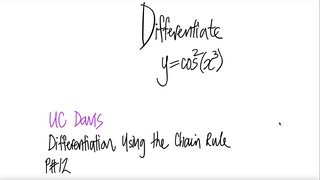 Differentiate
y=cos²(x³)
UC Davis
Differentiation Using the Chain Rule
P#12